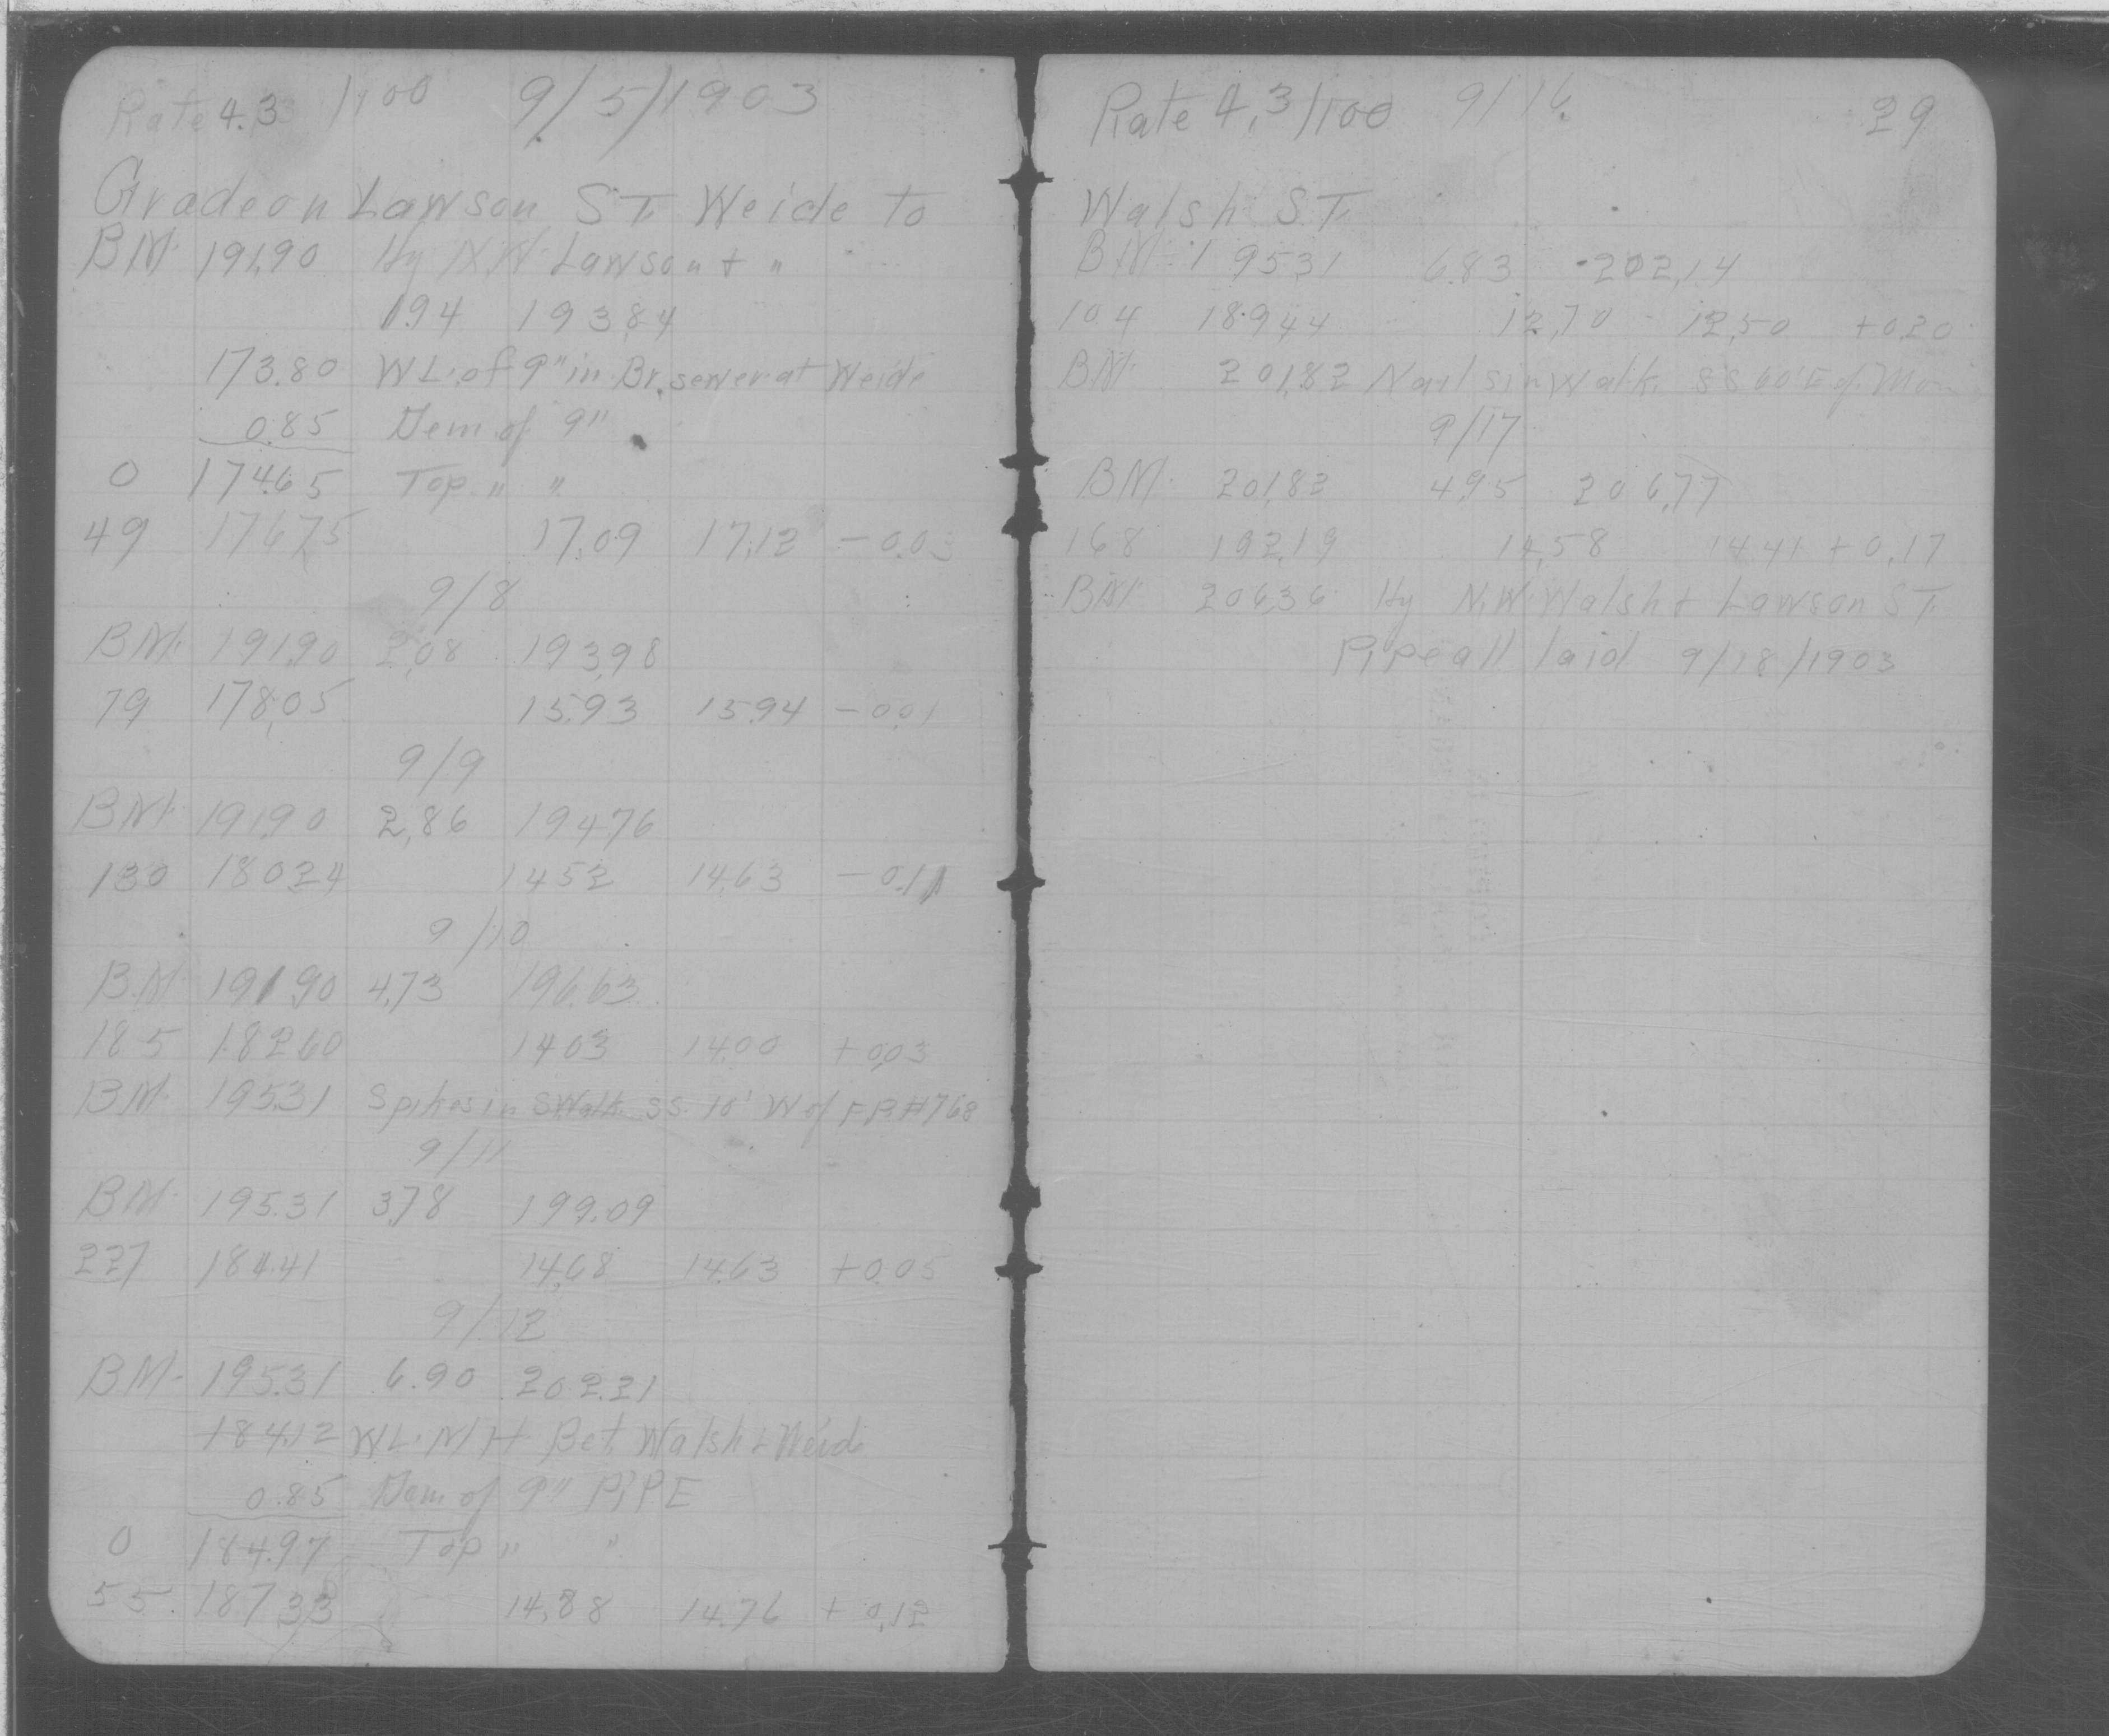 Rate 4.3 /100 9/5/1903
Grade on Lawson ST. Weide to
BM. 191.90 Hy N.W. Lawson + "
1.94 193.84
173.80 W.L. of 9" in Br. sewer at Weide
0.85 Dem of 9"
0 174.65 Top " "
49 176.75 17.09 17.12 - 0.03
9/8
BM. 191.90 2.08 193.98
79 178.05 15.93 15.94 - 0.01
9/9
BM. 191.90 2.86 194.76
130 180.24 14.52 14.63 - 0.11
9/10
B.M. 191.90 4.73 196.63
185 182.60 14.03 14.00 + 0.03
BM. 195.31 Spikes in SWalk S.S. 10' W of F.B.#768
9/11
BM. 195.31 3.78 199.09
227 184.41 14.68 14.63 + 0.05
9/12
BM. 195.31 6.90 202.21
184.12 W.L. MH Bet Walsh + Weide
0.85 Dem of 9" PiPE
0 184.97 Top " "
55 187.33 14.88 14.76 + 0.12
Rate 4.3/100 9/16. 29
Walsh ST.
B.M. 195.31 6.83 202.14
104 189.44 12.70 12.50 + 0.20
BM. 201.82 Nail s in Walk. S S 60' E of
9/17
BM. 201.82 4.95 206.77
168 192.19 14.58 14.41 + 0.17
BM. 206.36 Hy N.W. Walsh + Lawson ST.
Pipe all laid 9/18/1903